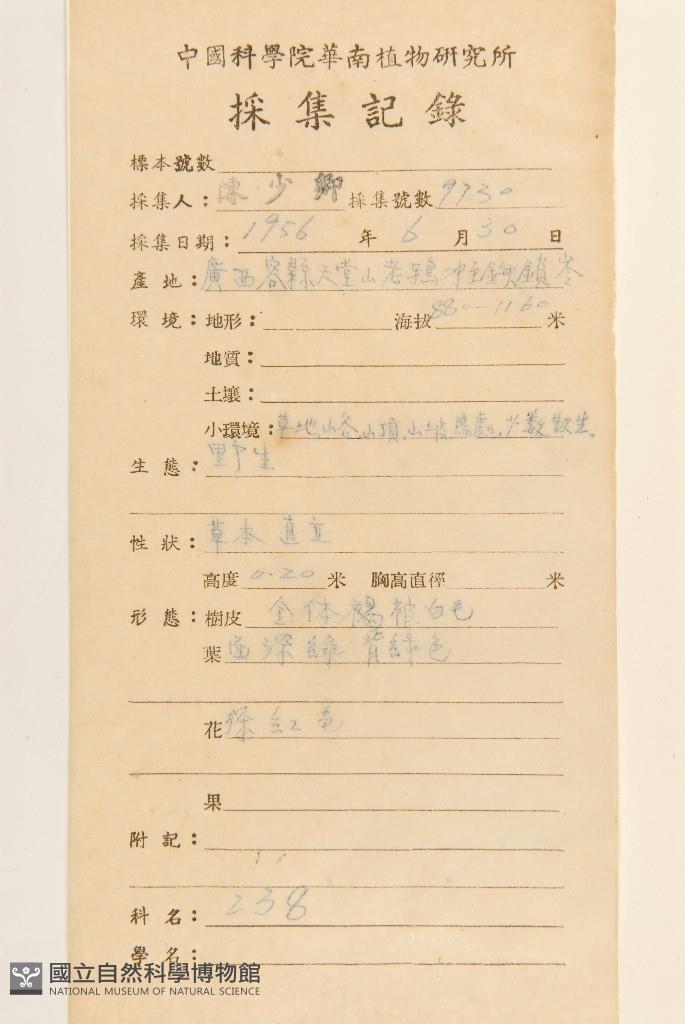 中國科學院華南植物研究所
採集記錄
標本號數
採集人：陳少卿 採集號數 9730
採集日期：1956 年 6 月 30 日
產地：廣西容縣天堂山老鴉冲至鉄鎖岑
環境：地形： 海拔 880-1160 米
地質：
土壤：
小環境：草地,山谷,山頂,山坡,陽處,少數散生
生態：野生
性狀：草本 直立
高度 0.20 米 胸高直徑 米
形態：樹皮 全体褐被白毛
葉 面深綠 背綠色
花 深紅色
果
附記：
科名：238
學名：
國立自然科學博物館
NATIONAL MUSEUM OF NATURAL SCIENCE